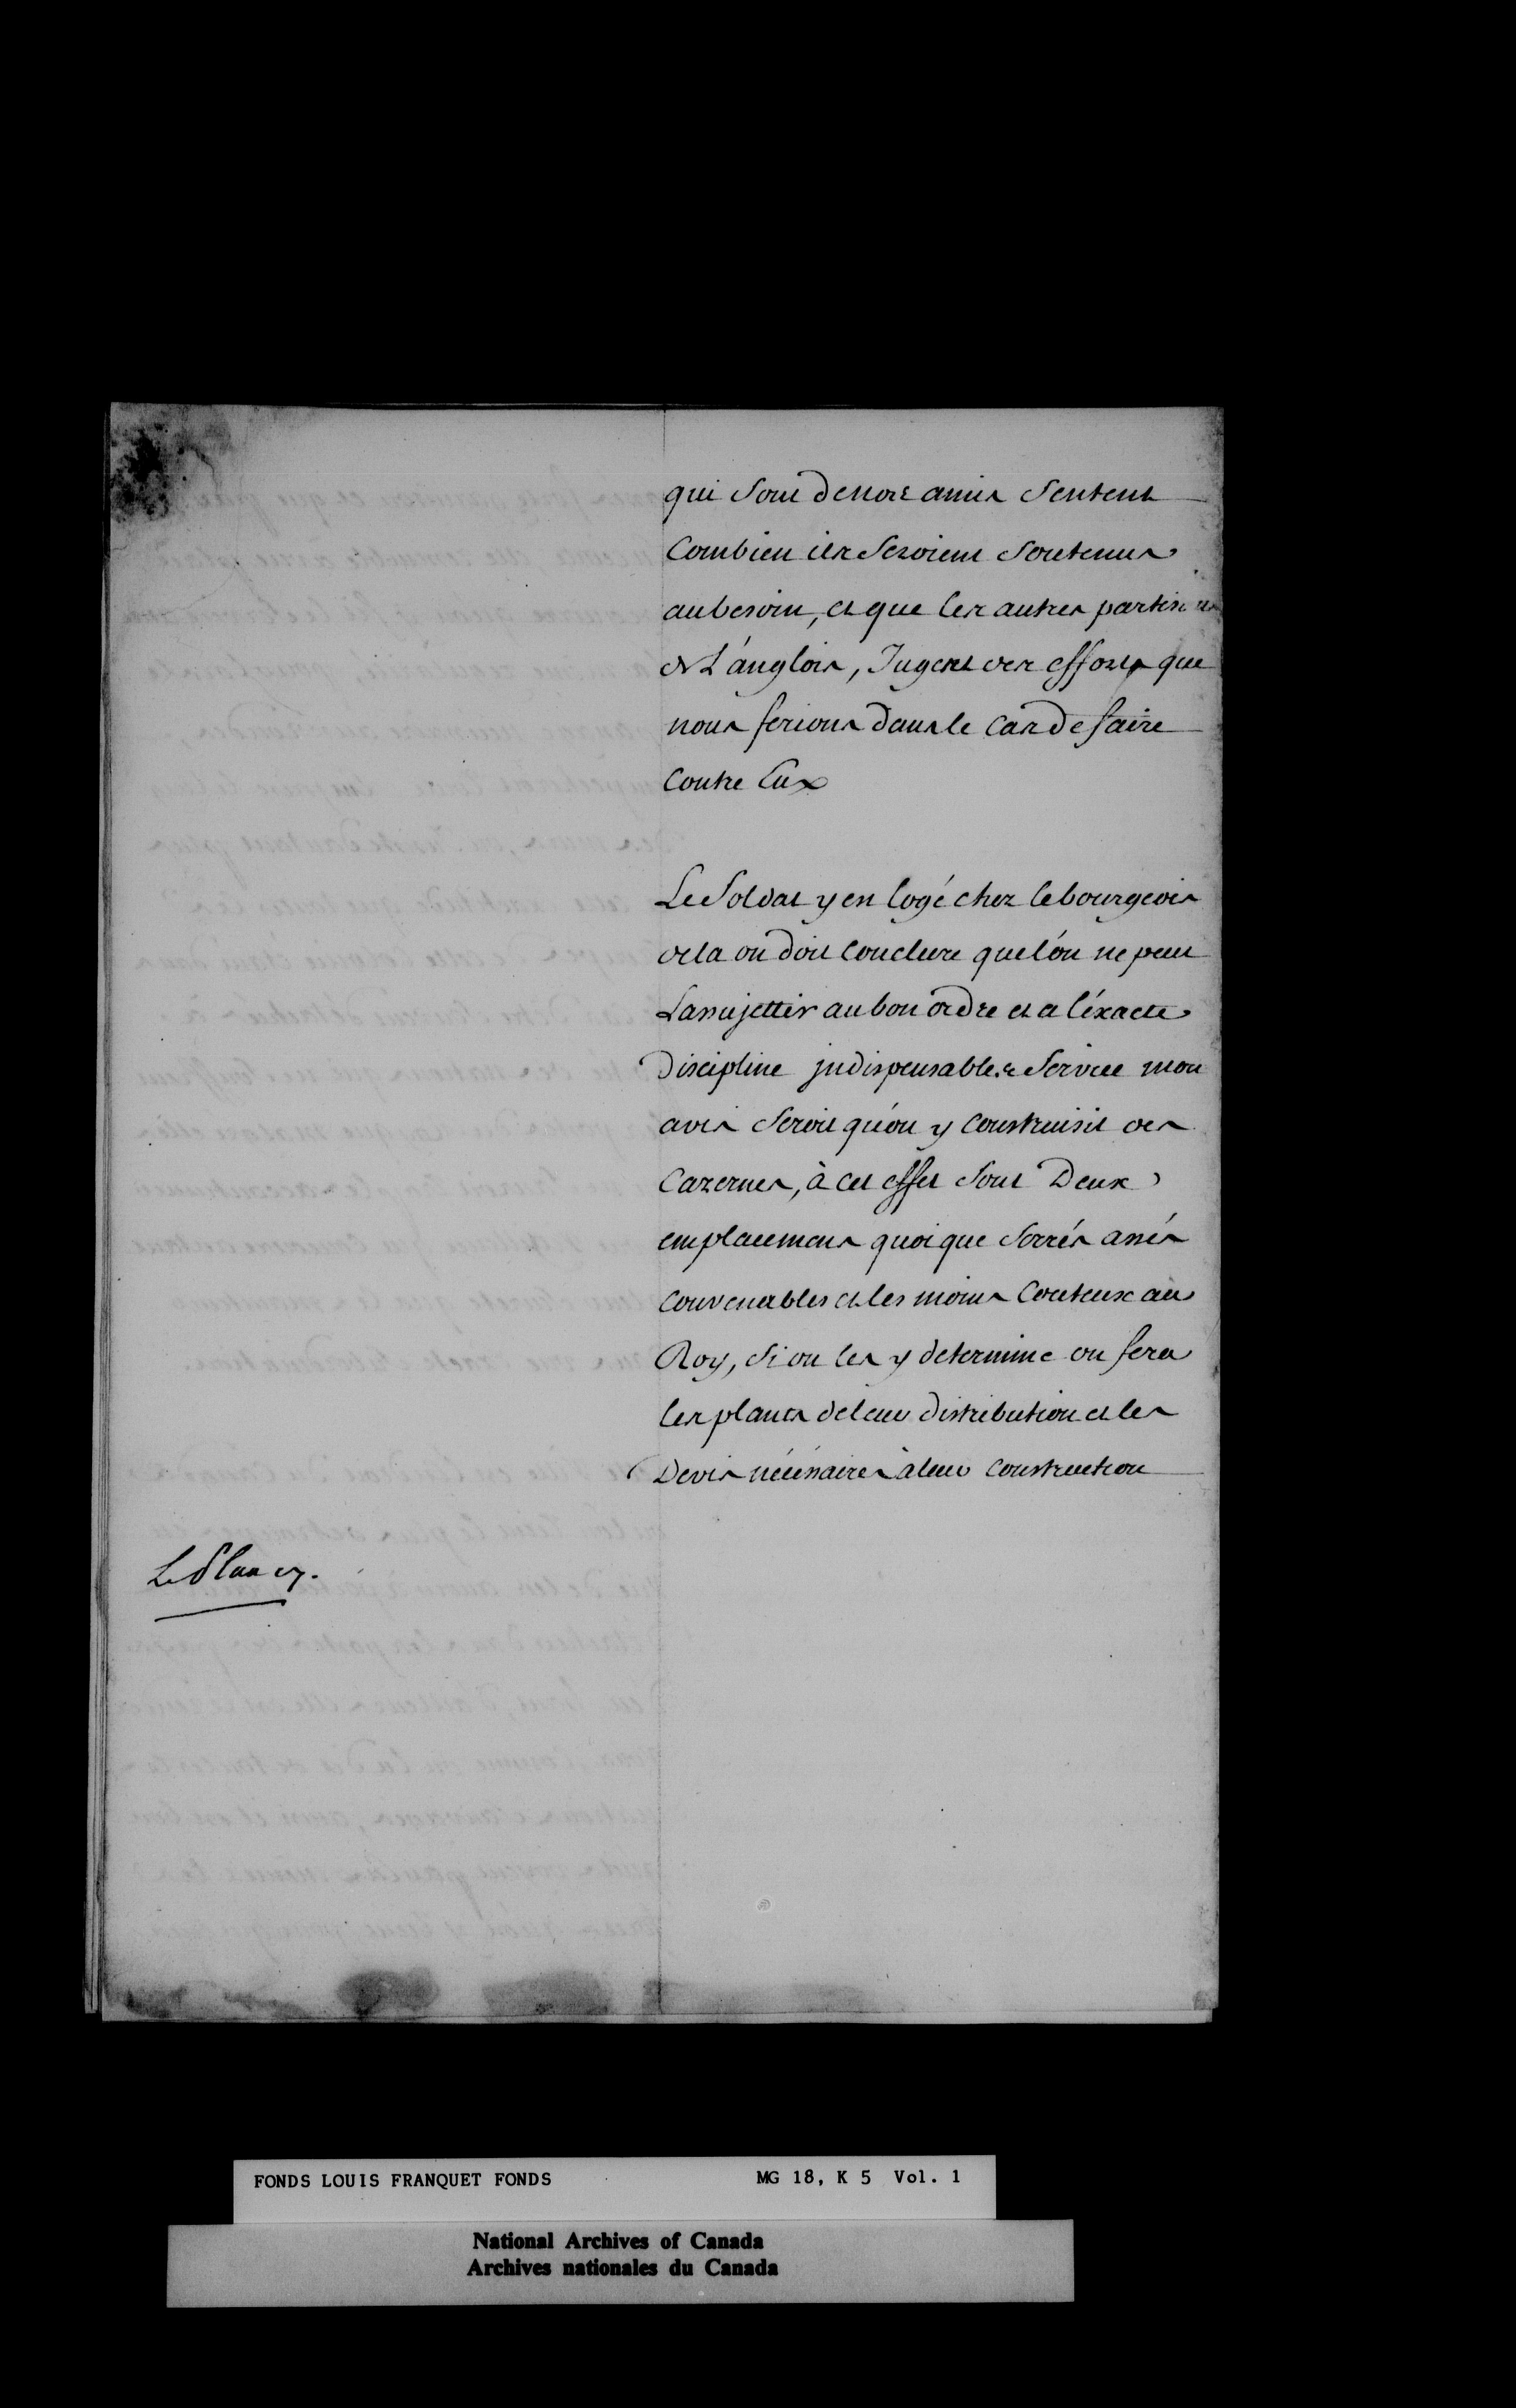 qui sont de nos amis sentent
Combien ils seroient soutenus
au besoin, et que les autres partisans
de L'anglois, Jugent des efforts que
nous ferions dans le cas de faire
Contre Eux
Le Soldat y est logé chez le bourgeois
de la on doit conclure que l'on ne peut
L'assujettir au bon ordre et a l'éxacte
Discipline indispensable au Service mon
avis seroit qu'on y construisit des
Cazernes, à cet effet sont Deux
emplacemens quoique serrés assés
convenables et les moins Couteux au
Roy, si on les y determine on fera
les plans de leur distribution et les
Devis nécéssaires à leur construction
FONDS LOUIS FRANQUET FONDS MG 18, K 5 Vol. 1
National Archives of Canada
Archives nationales du Canada